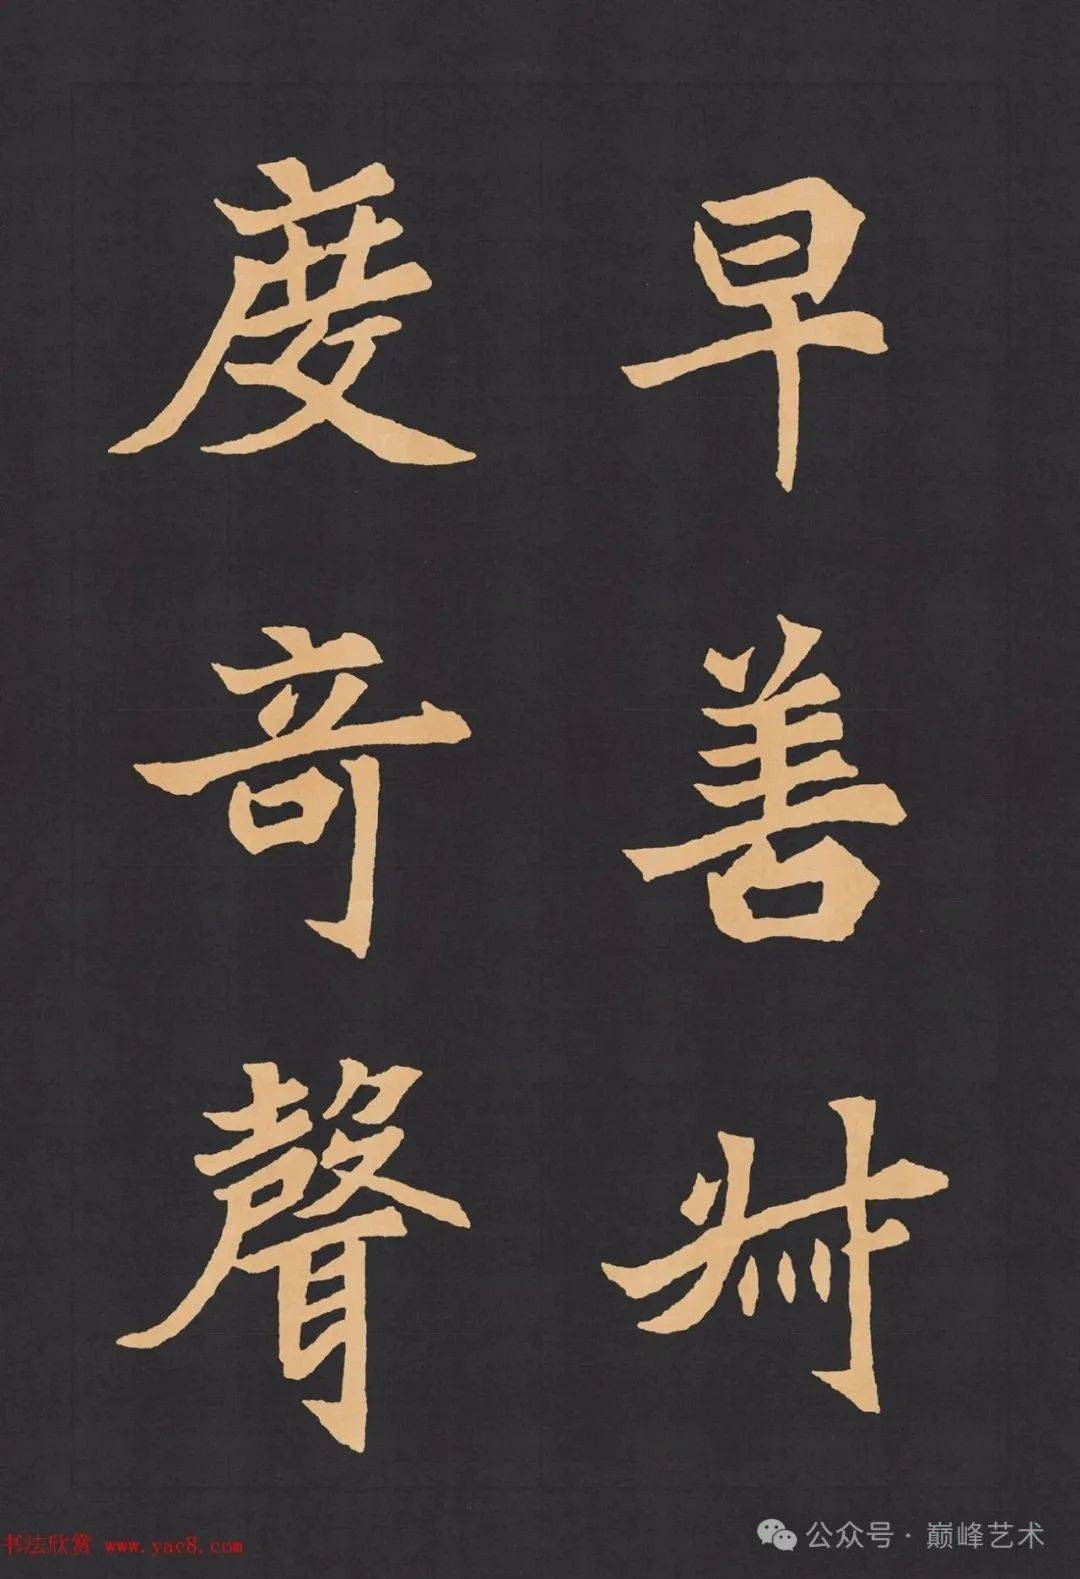 早善
度奇聲
书法欣赏 www.yac8.com
公众号 · 巅峰艺术